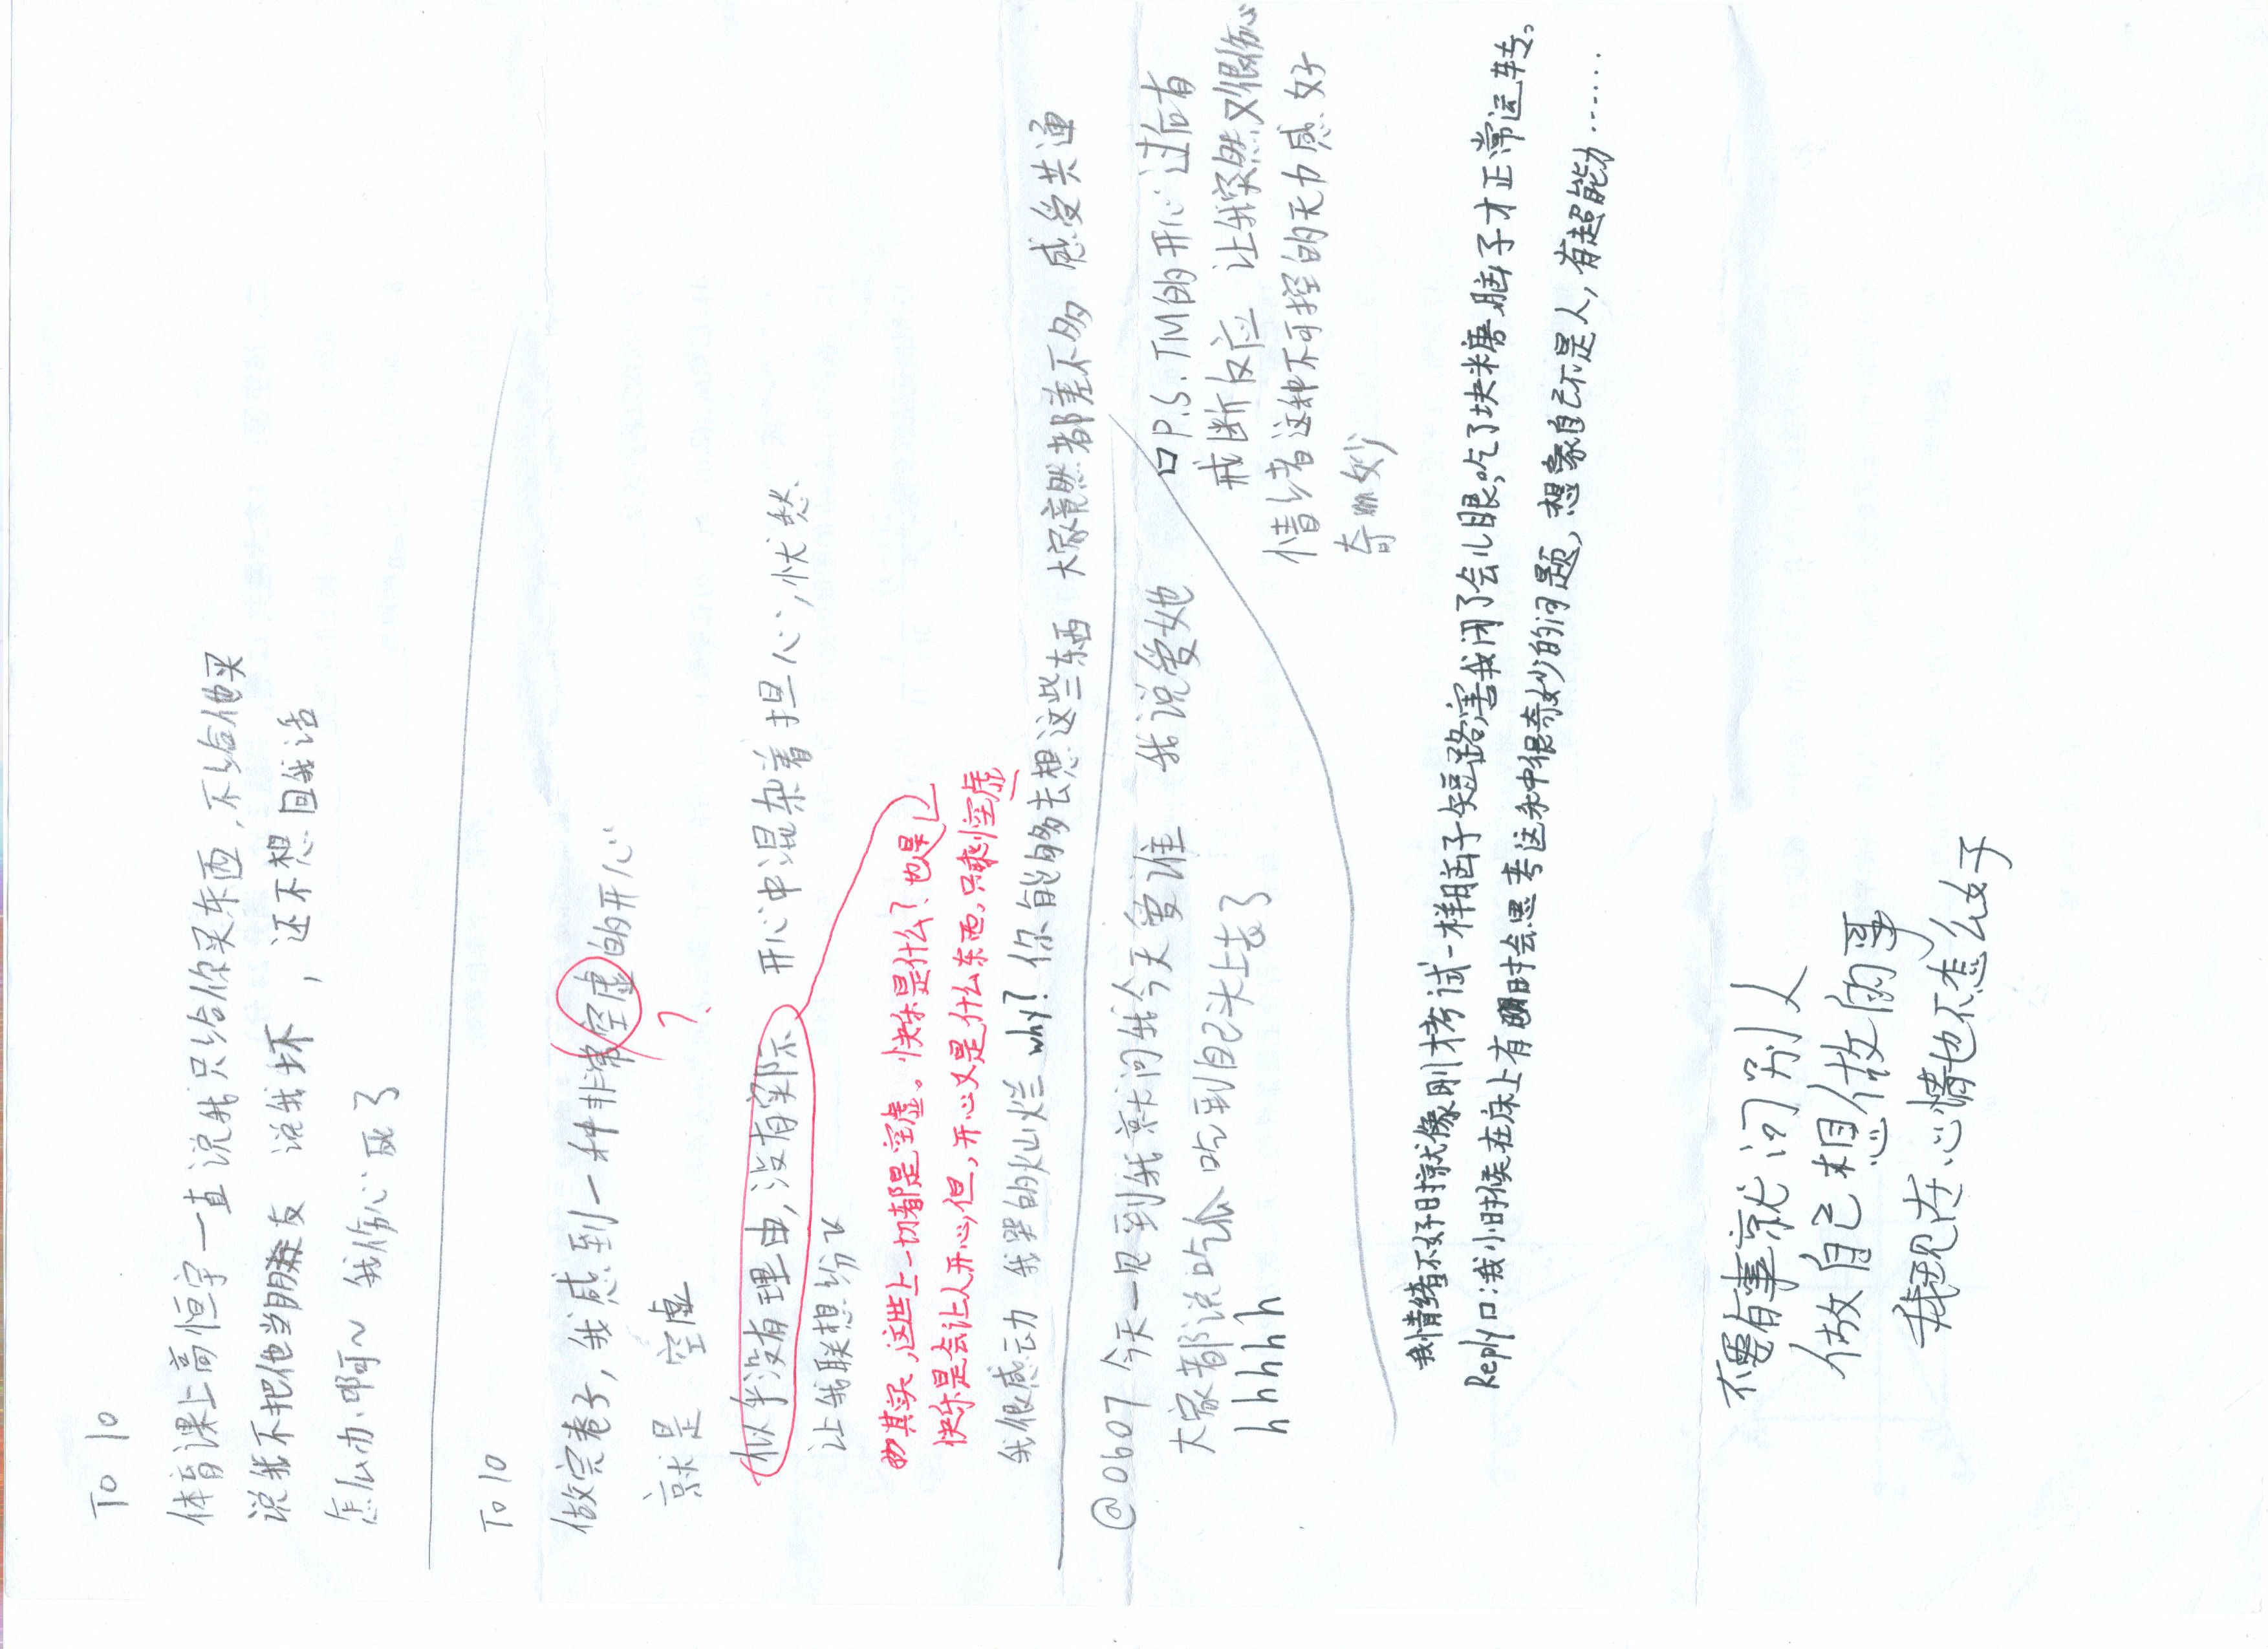 To 10
体育课上高恒宇一直说我只给你买东西，不给他买
说我不把他当朋友 说我坏，还不想回我话
怎么办啊~ 我伤心死了
To 10
做完卷子，我感到一种非常空虚的开心
？
就是 空虚
似乎没有理由，没有实际 开心中混杂着担心，忧愁
让我联想纷飞
其实，这世上一切都是空虚。快乐是什么？也是
快乐是会让人开心，但，开心又是什么东西，只剩空虚
我很感动 我哭的灿烂 why? 你能够去想这些东西 大家竟然都差不多 感受共通
@0607 今天一见到我就问我今天爱谁 我说爱她
大家都说吃瓜 吃到自己头上去了
hhhh
口P.S. TM的开心过后有
戒断反应 让我突然又很伤心
情绪这种不可控的无力感 好
奇妙
我情绪不好时就像刚才考试一样脑子短路，害我闭了会儿眼，吃了块糖脑子才正常运转。
Reply口：我小时候在床上有时会思考这种很奇妙的问题，想象自己不是人，有超能力……
不要有事就问别人
做自己想做的事
我现在心情也不怎么好